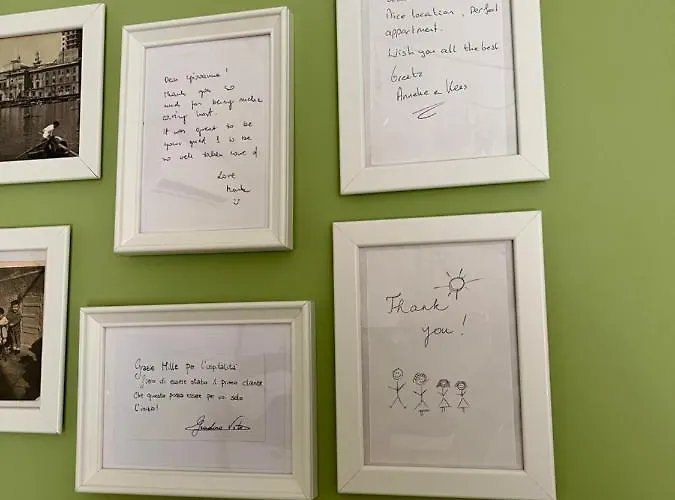 Dear Giovanna!
Thank you
and for being such a
caring host.
It was great to be
your guest & to be
so well taken care of.
Love
Nice location, Perfect
appartment.
Wish you all the best
Greetz
Anneke e Kees
Grazie Mille per l'ospitalità
fiero di essere stato il primo cliente
che questo possa essere per voi solo
l'inizio!
Thank
you!